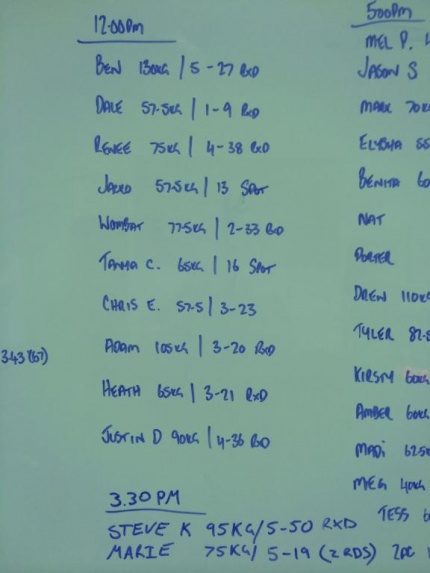 12:00PM
BEN 130KG / 5-27 RXD
DALE 57.5KG | 1-9 RXD
RENEE 75KG | 4-38 RXD
57.5KG | 13 SPOT
WOMBAT 77.5KG | 2-33 RXD
TANIA C. 65KG | 16 SPOT
CHRIS E. 57.5 | 3-23
ADAM 105KG | 3-20 RXD
343 (57)
HEATH 65KG | 3-21 RXD
JUSTIN D 90KG | 4-36 RXD
3.30 PM
STEVE K 95KG/5-50 RXD
MARIE 75KG/ 5-19 (2 RDS)
5:00PM
MEL P.
JASON S
MARK 70KG
ELYSHA 55
BENITA 60
NAT
PORTER
DREN 110KG
TYLER 82.5
KIRSTY 60KG
AMBER 60KG
MADI 62.5
MEG 40KG
TESS